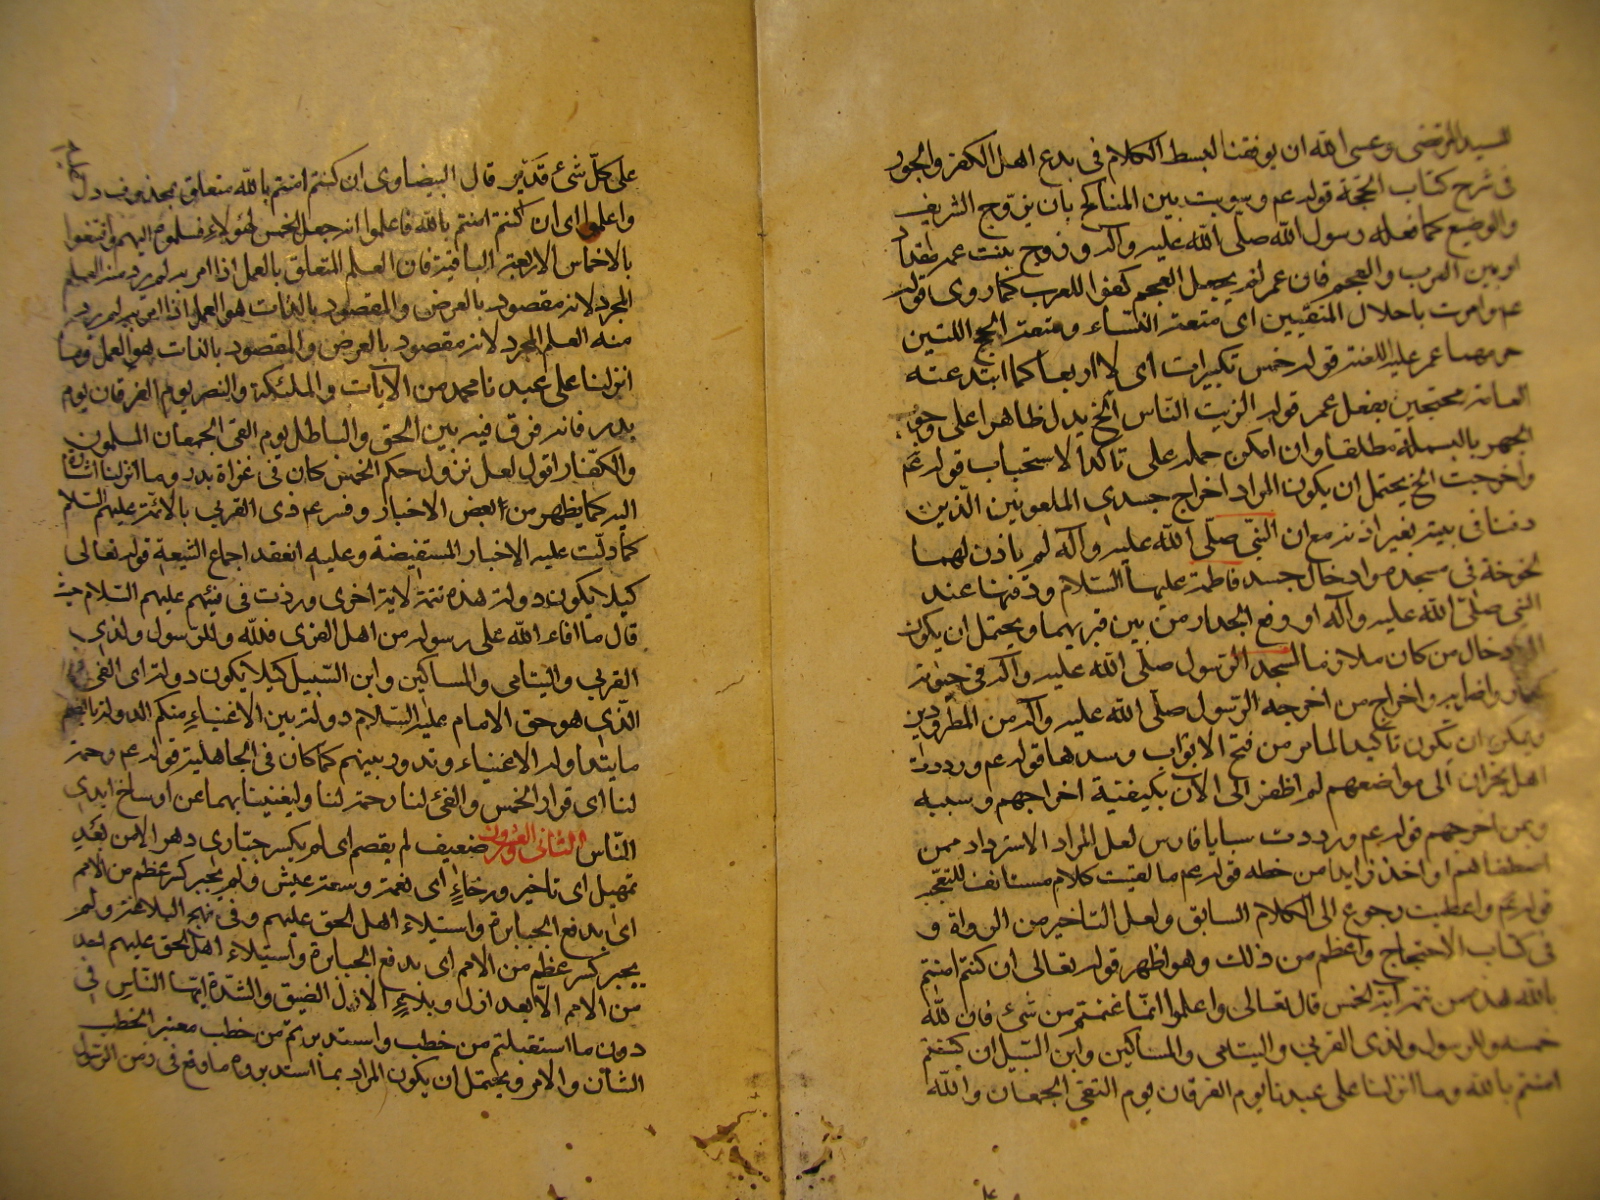 السيد المرتضى وعسى الله ان يوفقنا لبسط الكلام فى بدع اهل الكفر والجور
فى شرح كتاب الحجة قوله عم وسويت بين المناكح بان يزوج الشريف
والوضيع كما فعله رسول الله صلى الله عليه وآله وزوج بنت عمه مقدادا
او بين العرب والعجم فان عمر لم يجعل العجم كفوا للعرب كما روى قوله
عم وامرت باحلال المتعتين اى متعة النساء ومتعة الحج اللتين
حرمهما عمر عليه اللعنة قوله خمس تكبيرات اى لا اربعا كما ابتدعته
العامة محتجين بفعل عمر قوله الزمت الناس الخ يدل ظاهرا على وجوب
الجهر بالبسملة مطلقا وان امكن حمله على تاكد الاستحباب قوله عم
واخرجت الخ يحتمل ان يكون المراد اخراج جسدى الملعونين الذين
دفنا فى بيته بغير اذنه مع ان النبى صلى الله عليه وآله لم ياذن لهما
لخوخة فى مسجده وادخال جسد فاطمة عليها السلام ودفنها عند
النبى صلى الله عليه وآله او رفع الجدار من بين قبريهما ويحتمل ان يكون
ادخال من كان ملازما لمسجد الرسول صلى الله عليه وآله فى حيوته
كعمار واضرابه واخراج من اخرجه الرسول صلى الله عليه وآله من المطرودين
ويمكن ان يكون تاكيدا لما مر من فتح الابواب وسدها قوله عم ورددت
اهل نجران الى مواضعهم لم اظفر الى الآن بكيفية اخراجهم وسببه
وبمن اخرجهم قوله عم ورددت سبايا فارس لعل المراد الاسترداد ممن
اصطفاهم او اخذ زايدا من حظه قوله عم ما لقيت كلام مستانف للتعجب
قوله عم واعطيت رجوع الى الكلام السابق ولعل التاخير من الرواة و
فى كتاب الاحتجاج واعظم من ذلك وهو اظهر قوله تعالى ان كنتم امنتم
بالله هذه من تتمة آية الخمس قال تعالى واعلموا انما غنمتم من شئ فان لله
خمسه وللرسول ولذى القربى واليتامى والمساكين وابن السبيل ان كنتم
امنتم بالله وما انزلنا على عبدنا يوم الفرقان يوم التقى الجمعان والله
على كل شئ قدير قال البيضاوى ان كنتم امنتم بالله متعلق بمحذوف دل عليه
واعلموا اى ان كنتم امنتم بالله فاعلموا انه جعل الخمس لهؤلاء فسلموه اليهم واقتنعوا
بالاخماس الاربعة الباقية فان العلم المتعلق بالعمل اذا امر به لم يرد منه العلم
المجرد لانه مقصود بالعرض والمقصود بالذات هو العمل اذا امر به لم يرد
منه العلم المجرد لانه مقصود بالعرض والمقصود بالذات هو العمل وما
انزلنا على عبدنا محمد من الآيات والملئكة والنصر يوم الفرقان يوم
بدر فانه فرق فيه بين الحق والباطل يوم التقى الجمعان المسلمون
والكفار اقول لعل نزول حكم الخمس كان فى غزاة بدر وما انزلنا اشارة
اليه كما يظهر من بعض الاخبار وفسر عم ذى القربى بالائمة عليهم السلم
كما دلت عليه الاخبار المستفيضة وعليه انعقد اجماع الشيعة قوله تعالى
كيلا يكون دولة هذه تتمة لاية اخرى وردت فى فيئهم عليهم السلام حيث
قال ما افاء الله على رسوله من اهل القرى فلله وللرسول ولذى
القربى واليتامى والمساكين وابن السبيل كيلا يكون دولة اى الفئ
الذى هو حق الامام عليه السلام دولة بين الاغنياء منكم الدولة بالضم
ما يتداوله الاغنياء وتدور بينهم كما كان فى الجاهلية قوله عم رحمة
لنا اى قرار الخمس والفئ لنا رحمة لنا وليغنينا بهما عن اوساخ ايدى
الناس الثانى والعشرون ضعيف لم يقصم اى لم يكسر جبارى دهر الا من بعد
تمهيل اى تاخير ورخاء اى نعمة وسعة عيش ولم يجبر كسر عظم من الامم
اى بدفع الجبابرة واستيلاء اهل الحق عليهم وفى نهج البلاغة ولم
يجبر كسر عظم من الامم اى بدفع الجبابرة واستيلاء اهل الحق عليهم بعد
من الامم الا بعد ازل وبلاء الازل الضيق والشدة ايها الناس فى
دون ما استقبلتم من خطب واستدبرتم من خطب معتبر الخطب
الشأن والامر ويحتمل ان يكون المراد بما استدبروه ما وقع فى زمن الرسول